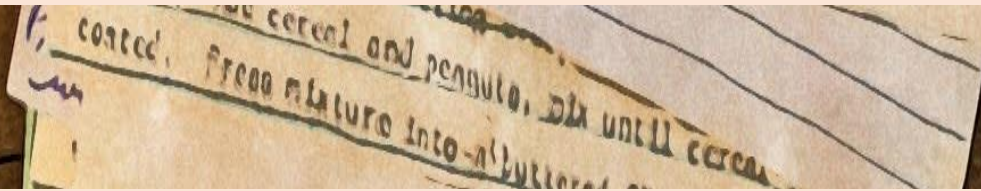 cereal and peanuts. Mix until cereal
coated. Press mixture into a buttered